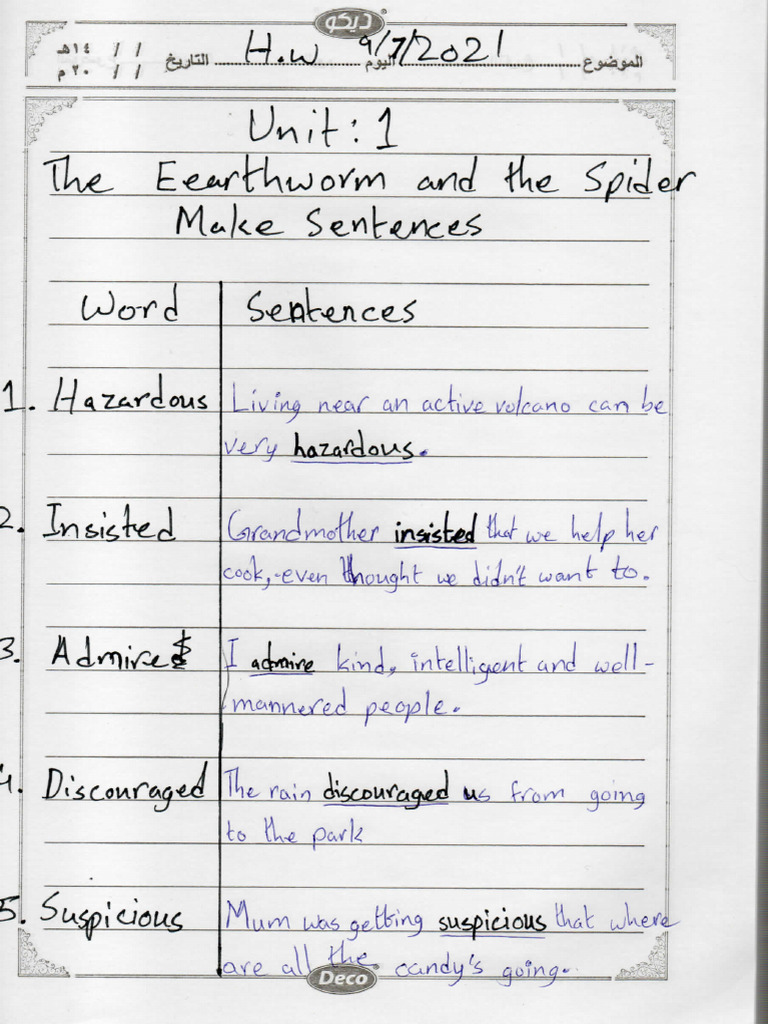 ديكو
الموضوع H.w اليوم 9/7/2021 التاريخ / / ١٤هـ
/ / ٢٠م
Unit: 1
The Eearthworm and the Spider
Make Sentences
Word Sentences
1. Hazardous Living near an active volcano can be
very hazardous.
2. Insisted Grandmother insisted that we help her
cook, even thought we didn't want to.
3. Admire I admire kind, intelligent and well-
mannered people.
4. Discouraged The rain discouraged us from going
to the park
5. Suspicious Mum was getting suspicious that where
are all the candy's going.
Deco